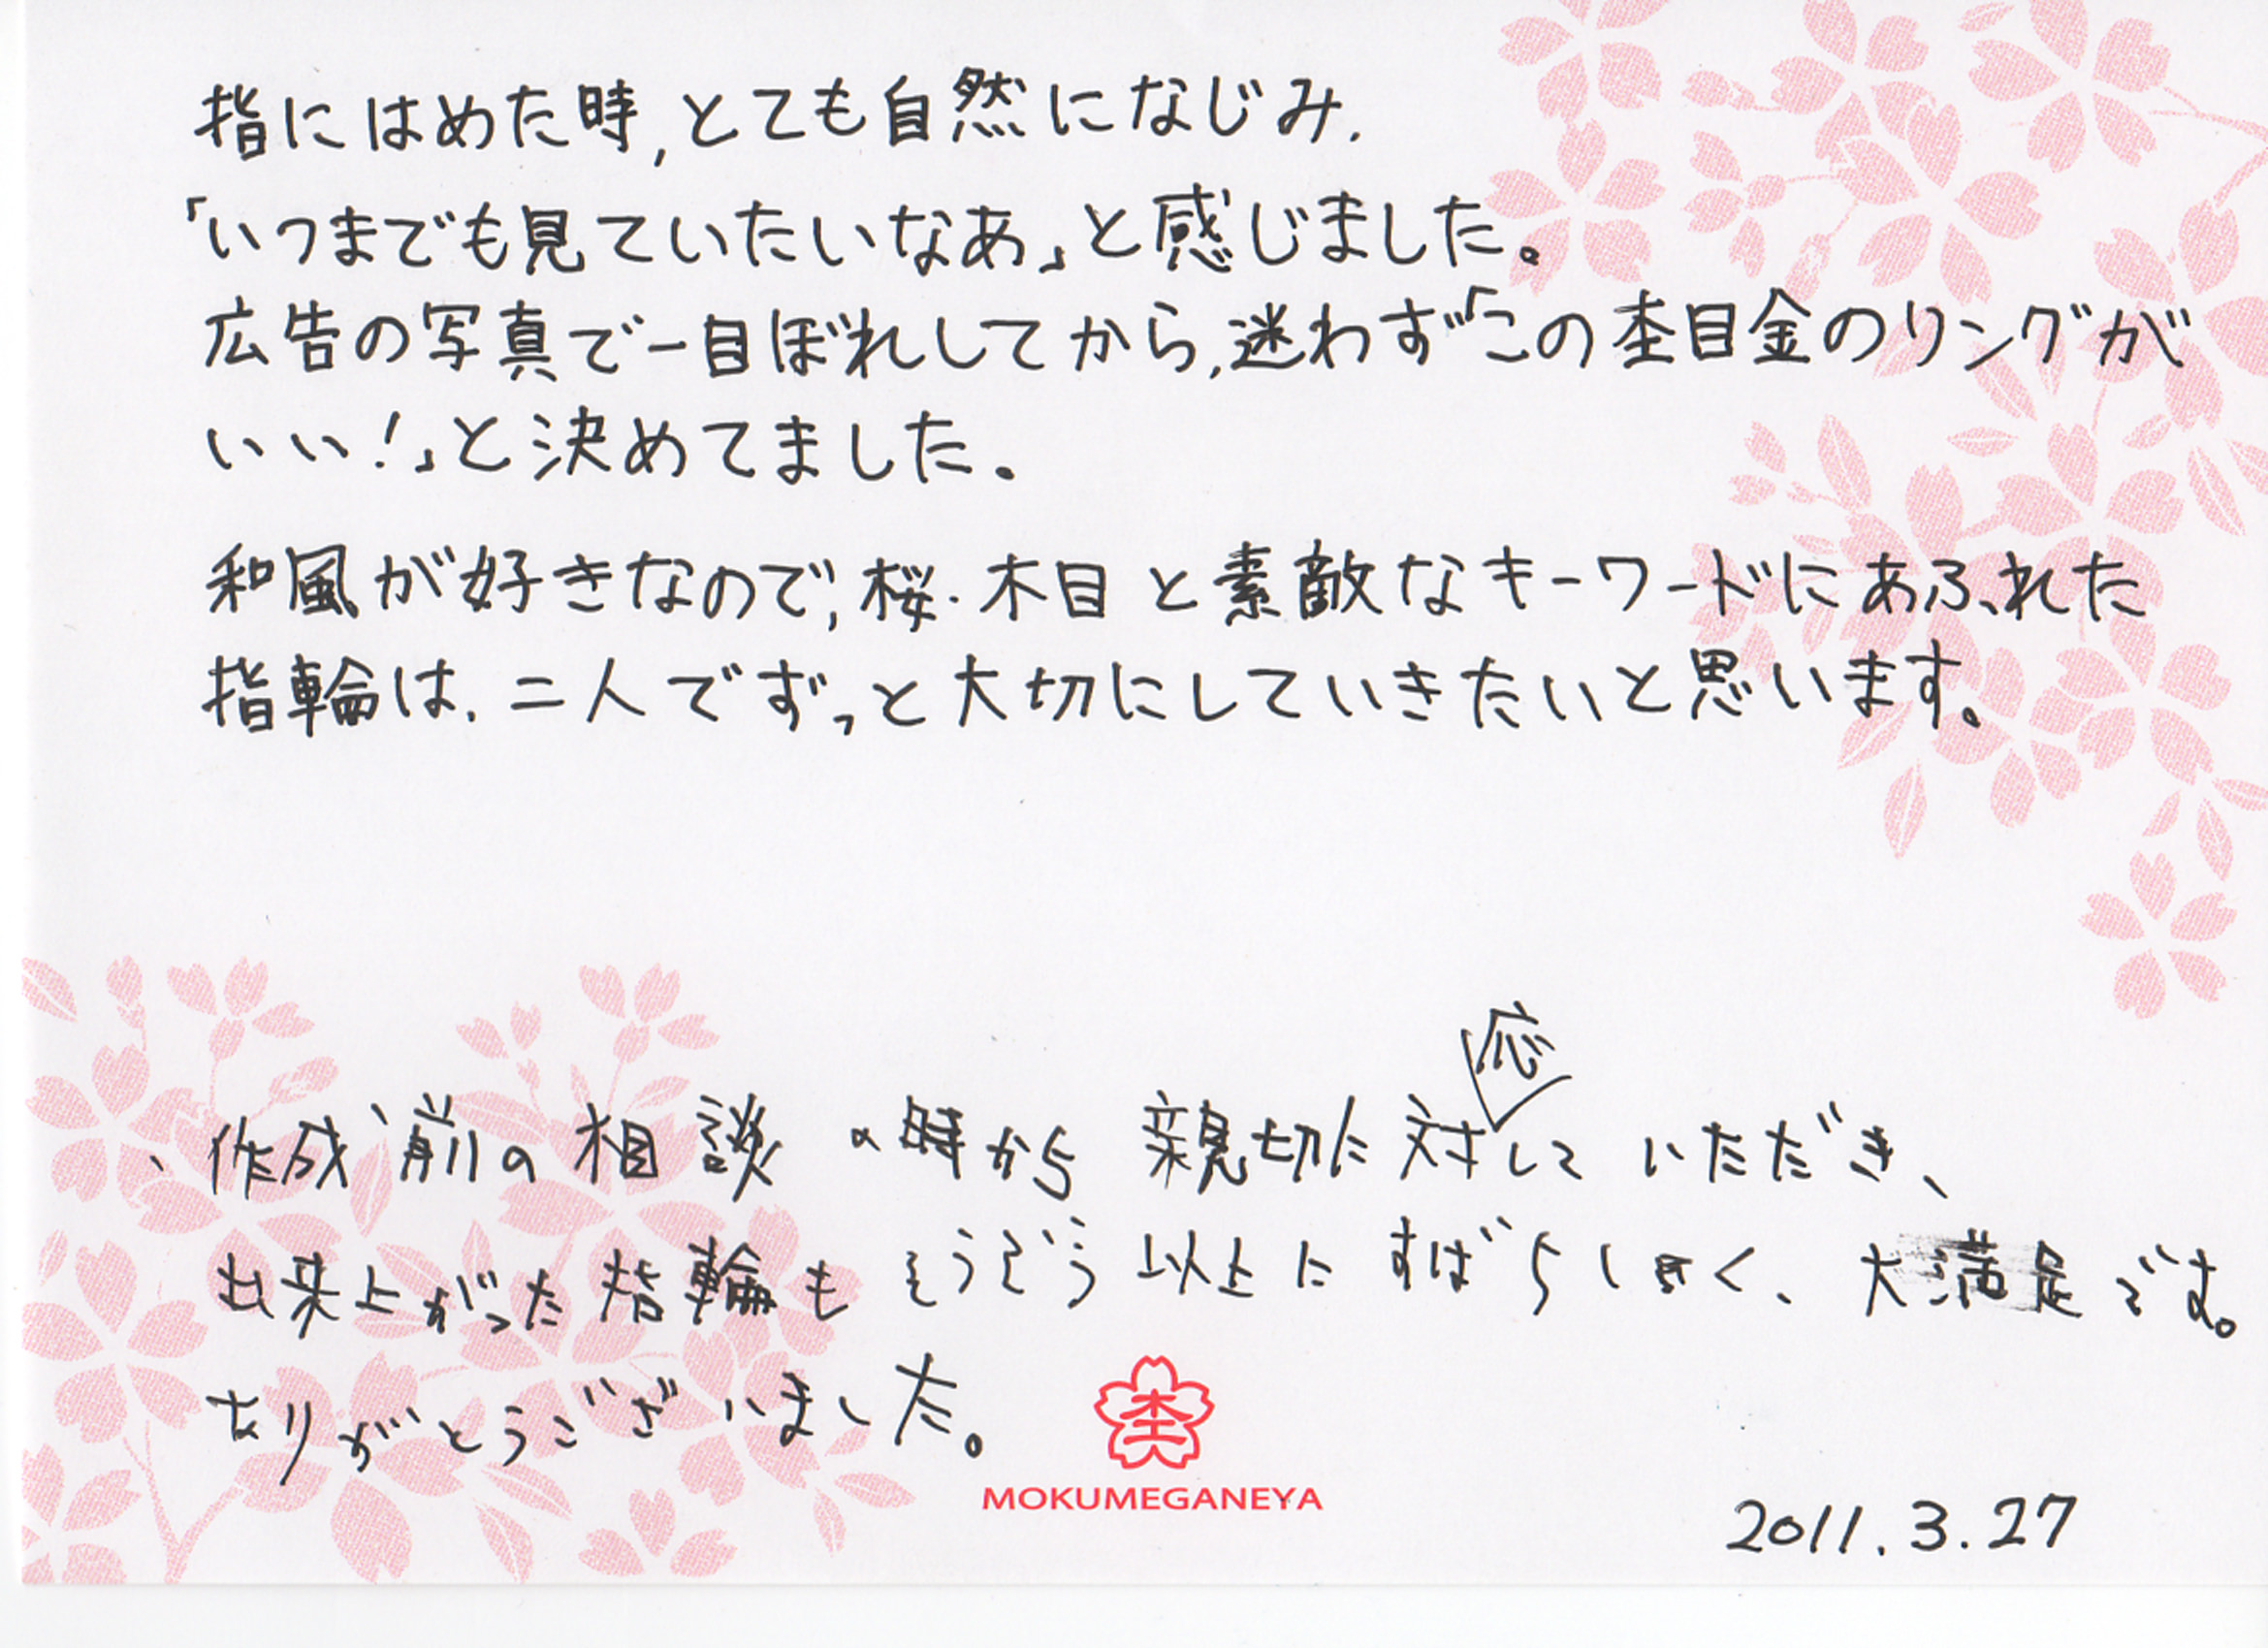 指にはめた時,とても自然になじみ.
「いつまでも見ていたいなあ」と感じました。
広告の写真で一目ぼれしてから,迷わず「この杢目金のリングが
いい!」と決めてました.
和風が好きなので,桜・木目と素敵なキーワードにあふれた
指輪は.二人でずっと大切にしていきたいと思います。
、作成前の相談の時から親切に対応していただき、
出来上がった指輪もそうぞう以上にすばらしく、大満足です。
ありがとうございました。
杢
MOKUMEGANEYA
2011.3.27